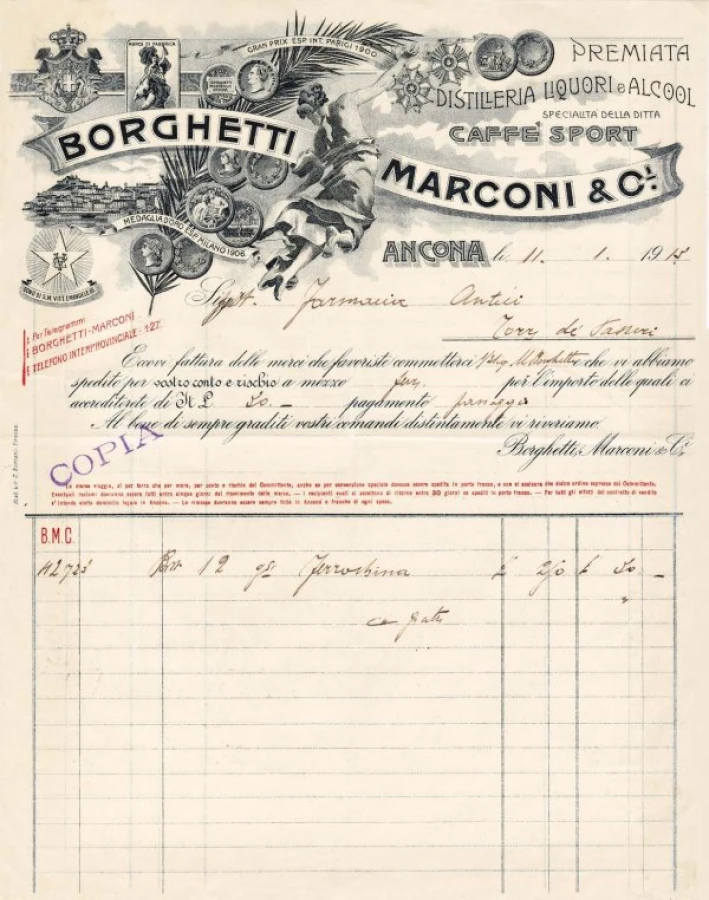 MARCA DI FABBRICA
GRAN PRIX ESP. INT. PARIGI 1900
PREMIATA
DISTILLERIA LIQUORI e ALCOOL
SPECIALITÀ DELLA DITTA
CAFFÈ SPORT
BORGHETTI
MARCONI & Ci.
MEDAGLIA D'ORO ESP. MILANO 1906
DONO DI S.M. VITT. EMANUELE III
ANCONA li 11. 1. 1915
Farmacia Antici
Per Telegrammi
BORGHETTI-MARCONI
TELEFONO INTERPROVINCIALE - 1-27
Eccovi fattura delle merci che favoriste commetterci che vi abbiamo
spedito per vostro conto e rischio a mezzo per l'importo delle quali ci
accrediterete di It L 30 — pagamento
Al bene di sempre graditi vostri comandi distintamente vi riveriamo.
Borghetti, Marconi & Ci.
COPIA
La merce viaggia, sì per terra che per mare, per conto e rischio del Committente, anche se per convenzione speciale dovesse essere spedita in porto franco, e non si assicura che dietro ordine espresso del Committente.
Eventuali reclami dovranno essere fatti entro cinque giorni dal ricevimento della merce. — I recipienti vuoti si accettano di ritorno entro 30 giorni se spediti in porto franco. — Per tutti gli effetti del contratto di vendita
s'intende eletto domicilio legale in Ancona. — Le rimesse dovranno essere fatte in Ancona e franche di ogni spesa.
B.M.C.
12 Ferrochina £ 2,50 £ 30 —